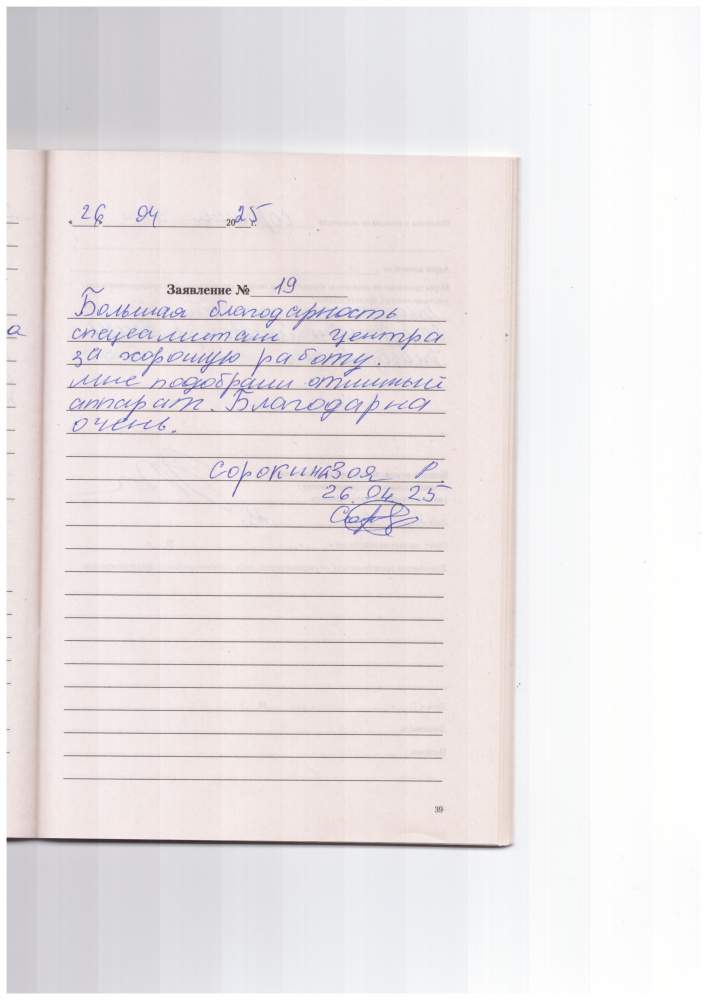 « 26 » 04 2025 г.
Заявление № 19
Большая благодарность
специалистам центра
за хорошую работу.
мне подобрали отличный
аппарат. Благодарна
очень.
Сорокина Зоя Р.
26.04 25
39